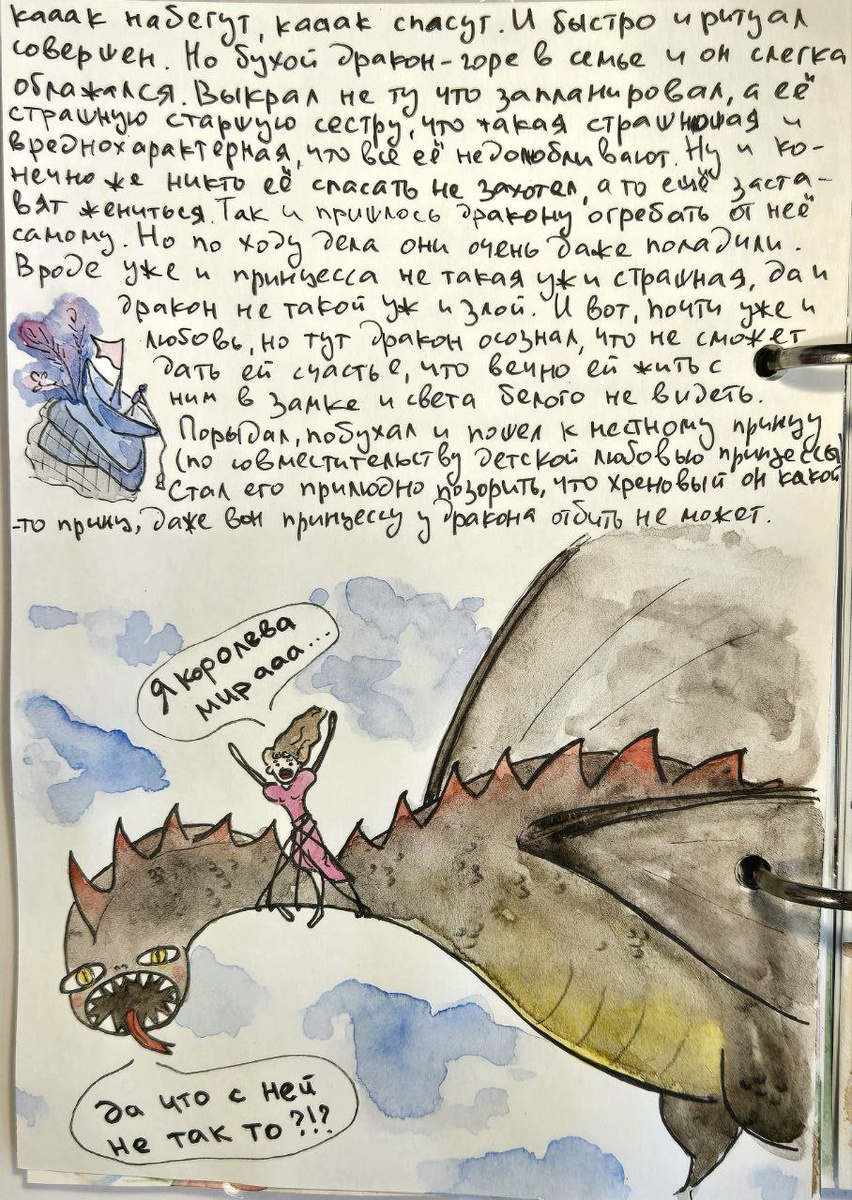 кааак набегут, кааак спасут. И быстро и ритуал
совершен. Но бухой дракон-горе в семье и он слегка
облажался. Выкрал не ту что запланировал, а её
страшную старшую сестру, что такая страшнющая и
вреднохарактерная, что все её недолюбливают. Ну и ко-
нечно же никто её спасать не захотел, а то ещё заста-
вят жениться. Так и пришлось дракону огребать от неё
самому. Но по ходу дела они очень даже поладили.
Вроде уже и принцесса не такая уж и страшная, да и
дракон не такой уж и злой. И вот, почти уже и
любовь, но тут дракон осознал, что не сможет
дать ей счастье, что вечно ей жить с
ним в замке и света белого не видеть.
Порыдал, побухал и пошел к местному принцу
(по совместительству детской любовью принцессы)
Стал его прилюдно позорить, что хреновый он какой
-то принц, даже вон принцессу у дракона отбить не может.
Я королева
мирааа...
Да что с ней
не так то?!?